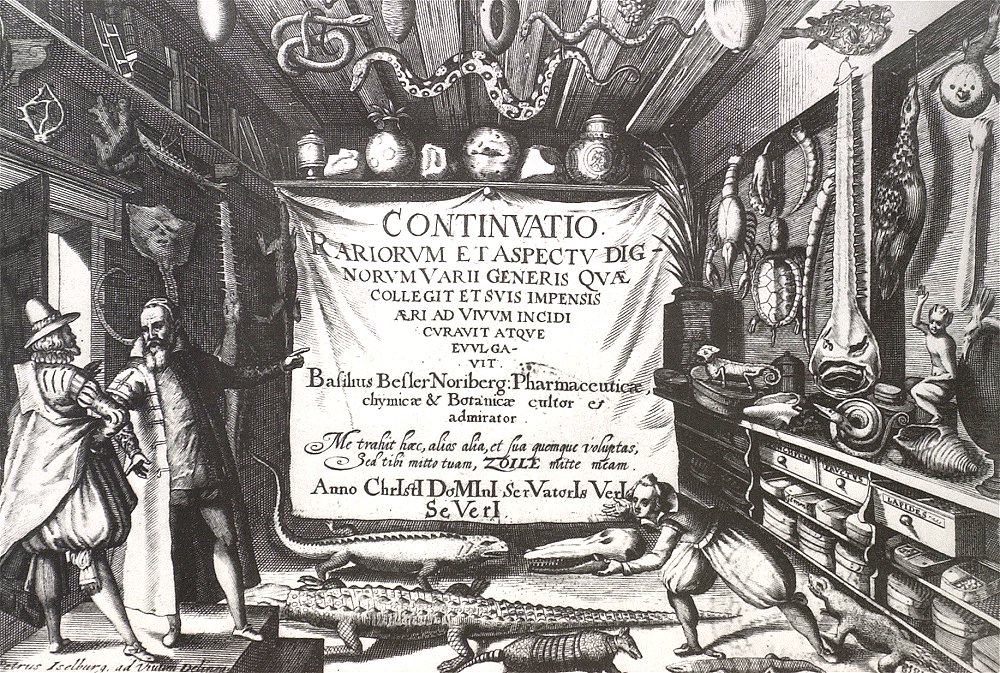 CONTINVATIO.
RARIORVM ET ASPECTV DIG-
NORVM VARII GENERIS QVÆ
COLLEGIT ET SVIS IMPENSIS
ÆRI AD VIVVM INCIDI
CVRAVIT ATQVE
EVVLGA-
VIT.
Basilius Besler Noriberg: Pharmaceuticæ,
chymicæ & Botanicæ cultor et
admirator.
Me trahit hæc, alios alia, et sua quemque voluptas,
Sed tibi mitto tuam, ZOILE mitte meam.
Anno ChrIstI DoMInI SerVatorIs VerI
SeVerI.
FRUCTUS
LAPIDES
Petrus Iselburg. ad Vivum Delinea